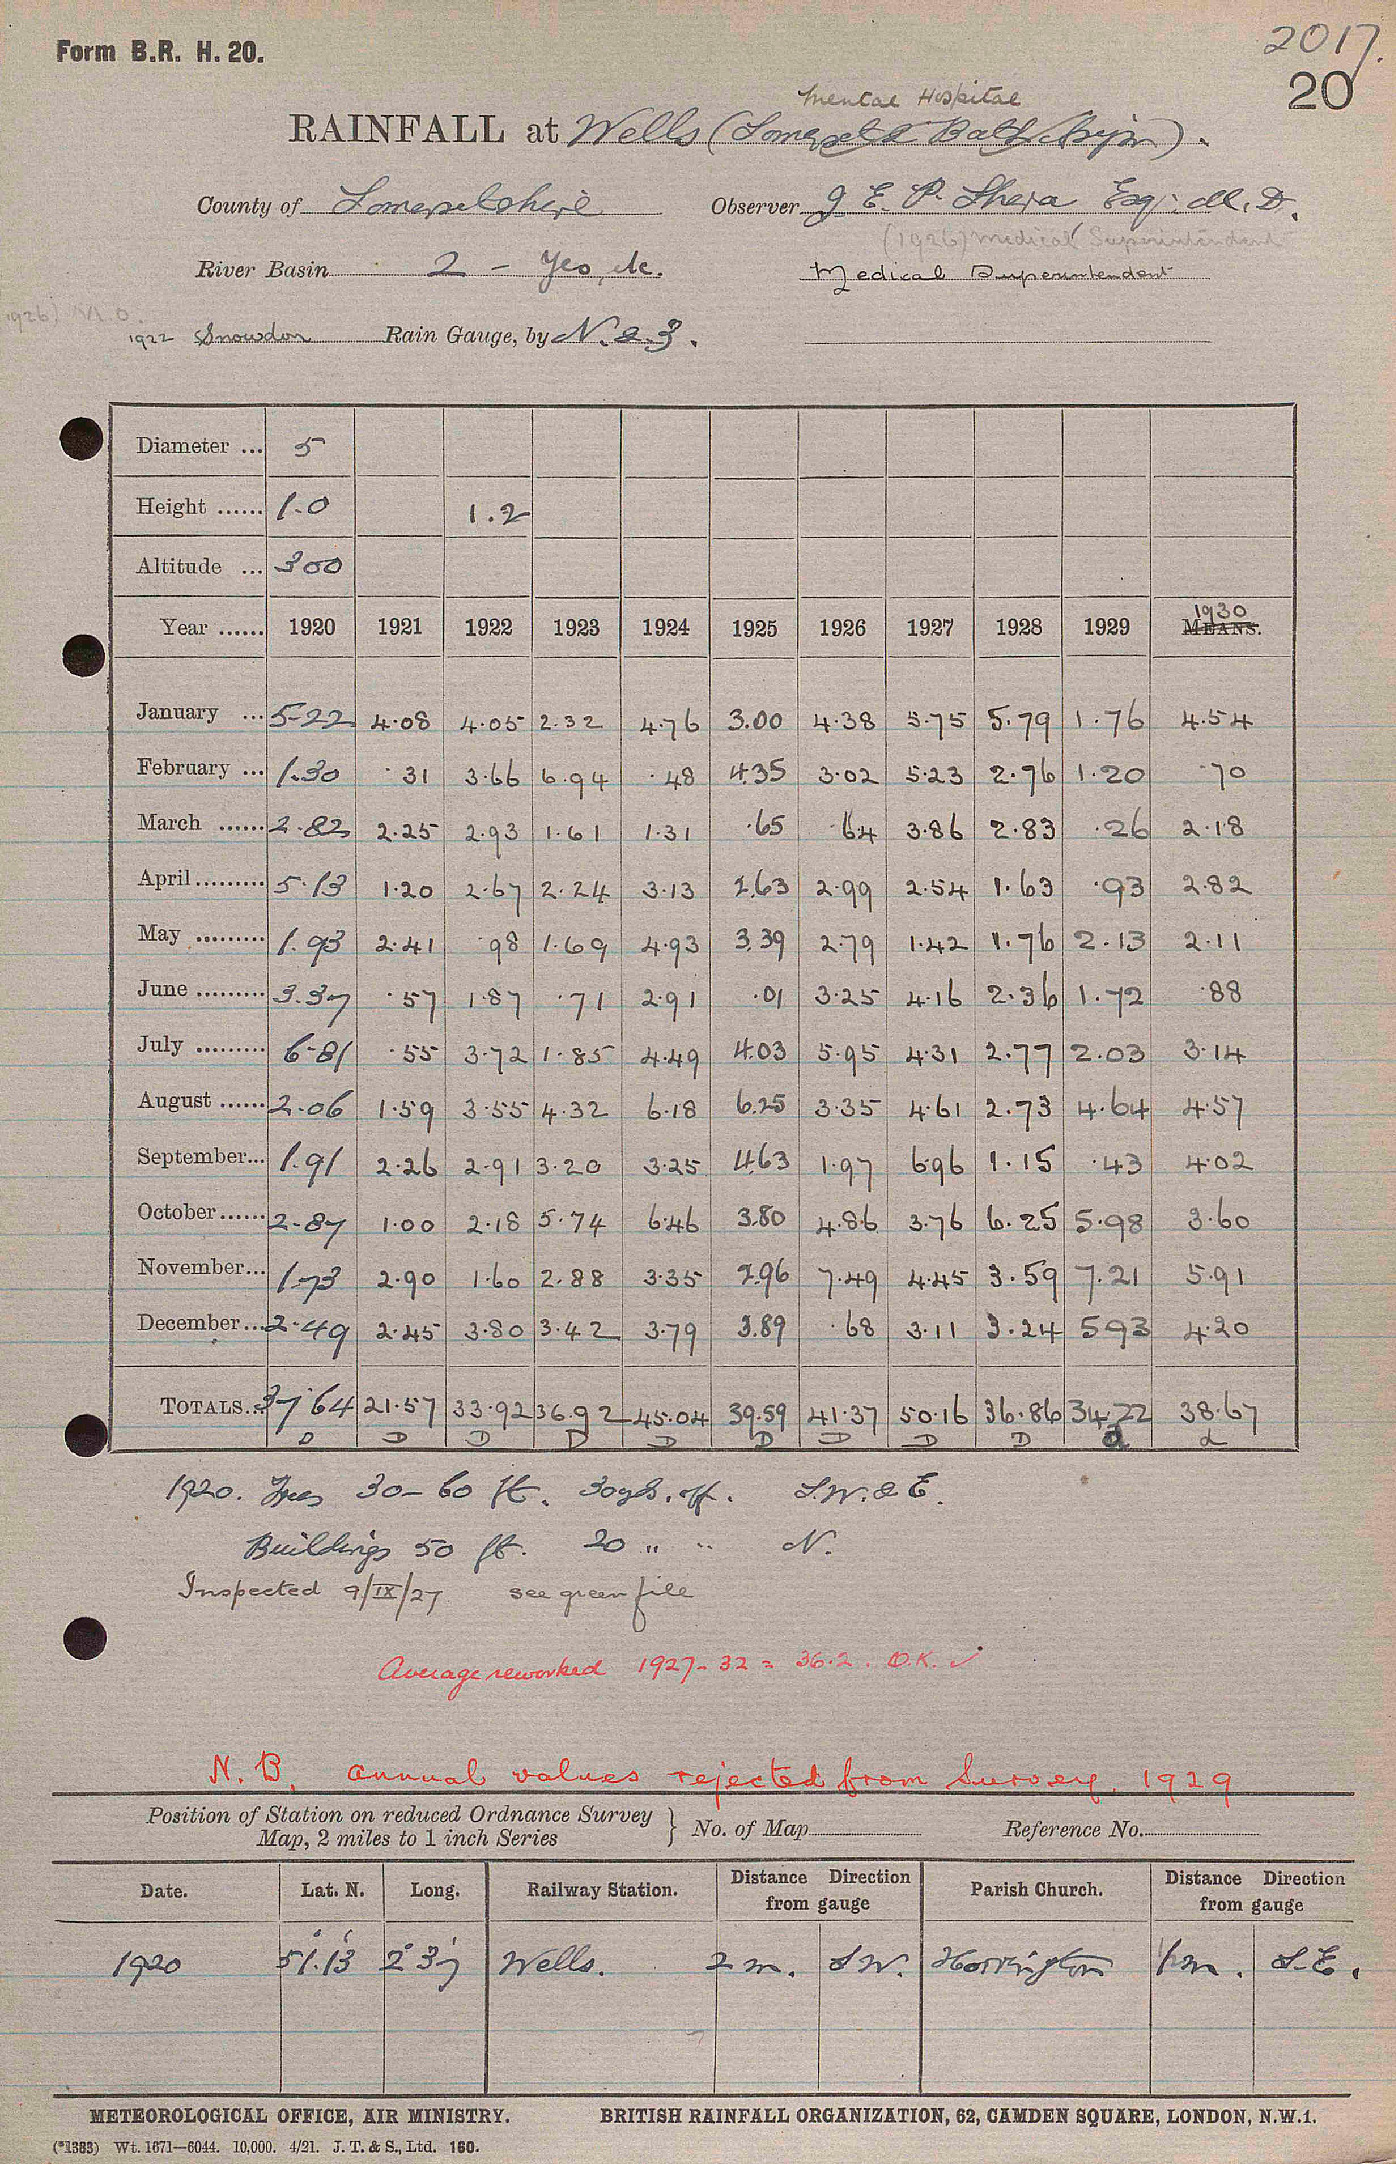 Form B.R. H. 20.
2017.
20
Mental Hospital
RAINFALL at Wells (Somerset & Bath Asylum).
County of Somersetshire Observer J E. P. Shera Esq. M.D.
(1926) Medical Superintendent
River Basin 2 - Yeo, etc. Medical Superintendent
1926) M.O.
1922 Snowdon Rain Gauge, by N. & Z.
Diameter ... 5
Height ...... 1.0 1.2
Altitude ... 300
1930
Year ...... 1920 1921 1922 1923 1924 1925 1926 1927 1928 1929 MEANS.
January ... 5.22 4.08 4.05 2.32 4.76 3.00 4.38 5.75 5.79 1.76 4.54
February ... 1.30 .31 3.66 6.94 .48 4.35 3.02 5.23 2.76 1.20 .70
March ...... 2.82 2.25 2.93 1.61 1.31 .65 .64 3.86 2.83 .26 2.18
April ......... 5.13 1.20 2.67 2.24 3.13 2.63 2.99 2.54 1.63 .93 2.82
May ......... 1.93 2.41 .98 1.69 4.93 3.39 2.79 1.42 1.76 2.13 2.11
June ......... 3.37 .57 1.87 .71 2.91 .01 3.25 4.16 2.36 1.72 .88
July ......... 6.81 .55 3.72 1.85 4.49 4.03 5.95 4.31 2.77 2.03 3.14
August ...... 2.06 1.59 3.55 4.32 6.18 6.25 3.35 4.61 2.73 4.64 4.57
September... 1.91 2.26 2.91 3.20 3.25 4.63 1.97 6.96 1.15 .43 4.02
October ...... 2.87 1.00 2.18 5.74 6.46 3.80 4.86 3.76 6.25 5.98 3.60
November... 1.73 2.90 1.60 2.88 3.35 2.96 7.49 4.45 3.59 7.21 5.91
December ... 2.49 2.45 3.80 3.42 3.79 3.89 .68 3.11 3.24 5.93 4.20
TOTALS... 37.64 21.57 33.92 36.92 45.04 39.59 41.37 50.16 36.86 34.22 38.67
D D D D D D D D D d d
1920. Trees 30-60 ft. 30yds. off. S.W. & E.
Buildings 50 ft. 20 " " N.
Inspected 9/IX/27 see green file
Average reworked 1927-32 = 36.2. O.K. ✓
N.B. annual values rejected from Survey. 1929
Position of Station on reduced Ordnance Survey Map, 2 miles to 1 inch Series } No. of Map Reference No.
Date. Lat. N. Long. Railway Station. Distance Direction from gauge Parish Church. Distance Direction from gauge
1920 51° 13' 2° 37' Wells. 2 m. S.W. Horrington 1/m. S.E.
METEOROLOGICAL OFFICE, AIR MINISTRY. BRITISH RAINFALL ORGANIZATION, 62, CAMDEN SQUARE, LONDON, N.W.1.
(*1383) Wt. 1671—6044. 10,000. 4/21. J. T. & S., Ltd. 160.